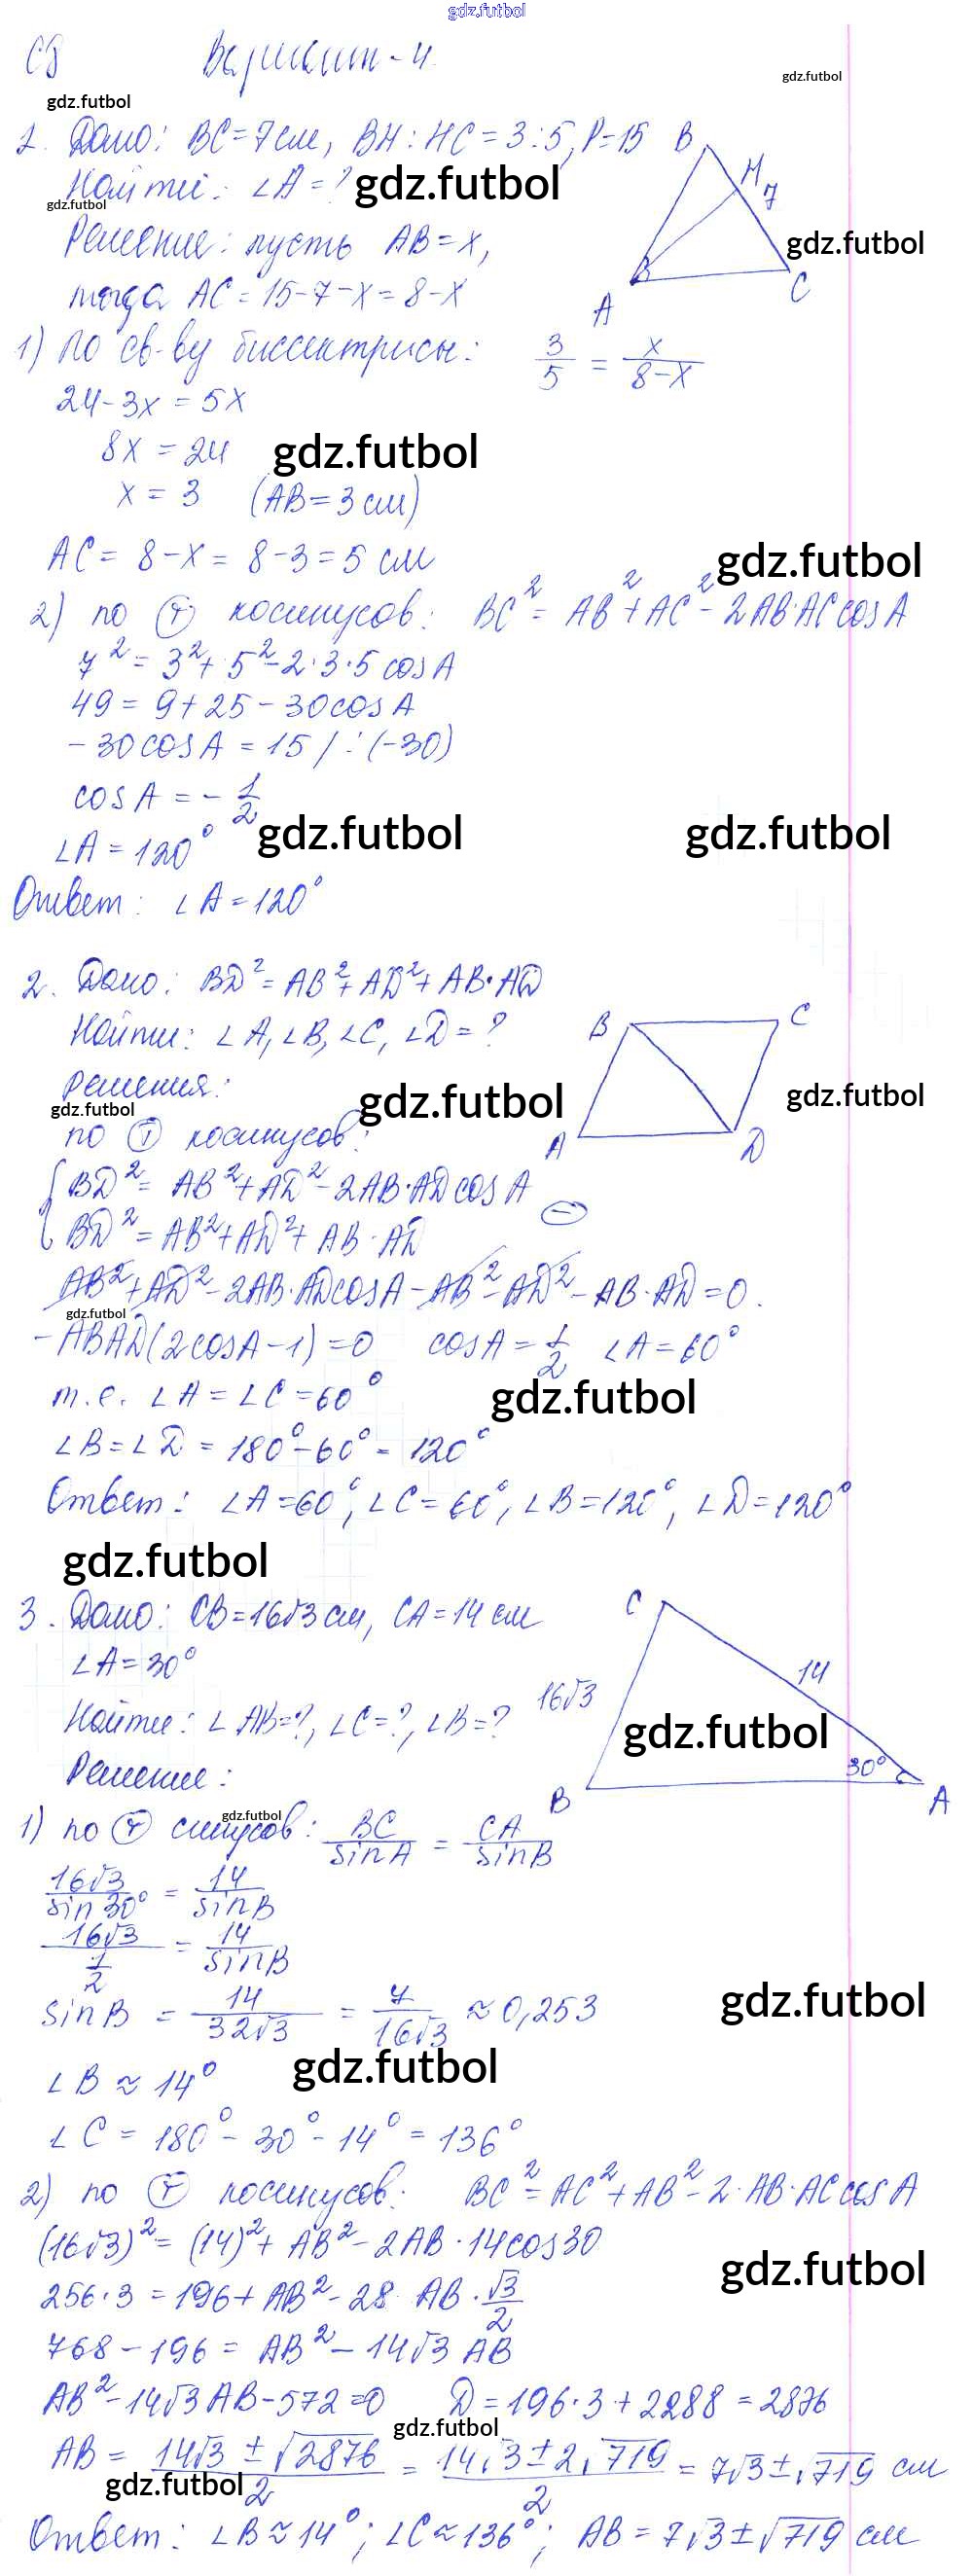 gdz.futbol
С8 Вариант-4.
gdz.futbol
gdz.futbol
1. Дано: BC=7см, BH:HC=3:5, P=15
Найти: ∠A=? gdz.futbol
gdz.futbol
B H 7 C A
gdz.futbol
Решение: пусть AB=x,
тогда AC=15-7-x=8-x
1) По св-ву биссектрисы: 3/5 = x/(8-x)
24-3x=5x
8x=24 gdz.futbol
x=3 (AB=3см)
AC=8-x=8-3=5 см gdz.futbol
2) по т косинусов: BC²=AB²+AC²-2AB·AC cosA
7²=3²+5²-2·3·5 cosA
49=9+25-30cosA
-30cosA=15 /:(-30)
cosA=-1/2
∠A=120° gdz.futbol gdz.futbol
Ответ: ∠A=120°
2. Дано: BD²=AB²+AD²+AB·AD
Найти: ∠A, ∠B, ∠C, ∠D=?
B C
A D
Решения:
gdz.futbol gdz.futbol gdz.futbol
по т косинусов:
{BD²=AB²+AD²-2AB·AD cosA
BD²=AB²+AD²+AB·AD (-)
AB²+AD²-2AB·ADcosA-AB²-AD²-AB·AD=0.
gdz.futbol
-ABAD(2cosA-1)=0 cosA=1/2 ∠A=60°
т.е. ∠A=∠C=60° gdz.futbol
∠B=∠D=180°-60°=120°
Ответ: ∠A=60°, ∠C=60°, ∠B=120°, ∠D=120°
gdz.futbol
3. Дано: CB=16√3 см, CA=14 см
∠A=30°
Найти: ∠AB=?, ∠C=?, ∠B=?
C 14 16√3 30° B A
gdz.futbol
Решение:
gdz.futbol
1) по т синусов: BC/sinA = CA/sinB
16√3/sin30° = 14/sinB
16√3/(1/2) = 14/sinB
sinB = 14/(32√3) = 7/(16√3) ≈ 0,253 gdz.futbol
∠B≈14° gdz.futbol
∠C=180°-30°-14°=136°
2) по т косинусов: BC²=AC²+AB²-2·AB·AC cosA
(16√3)²=(14)²+AB²-2AB·14cos30
gdz.futbol
256·3=196+AB²-28·AB·√3/2
768-196=AB²-14√3 AB
AB²-14√3AB-572=0 D=196·3+2288=2876
gdz.futbol
AB = (14√3±√2876)/2 = (14√3±2√719)/2 = 7√3±√719 см
gdz.futbol
Ответ: ∠B≈14°; ∠C≈136°; AB=7√3±√719 см